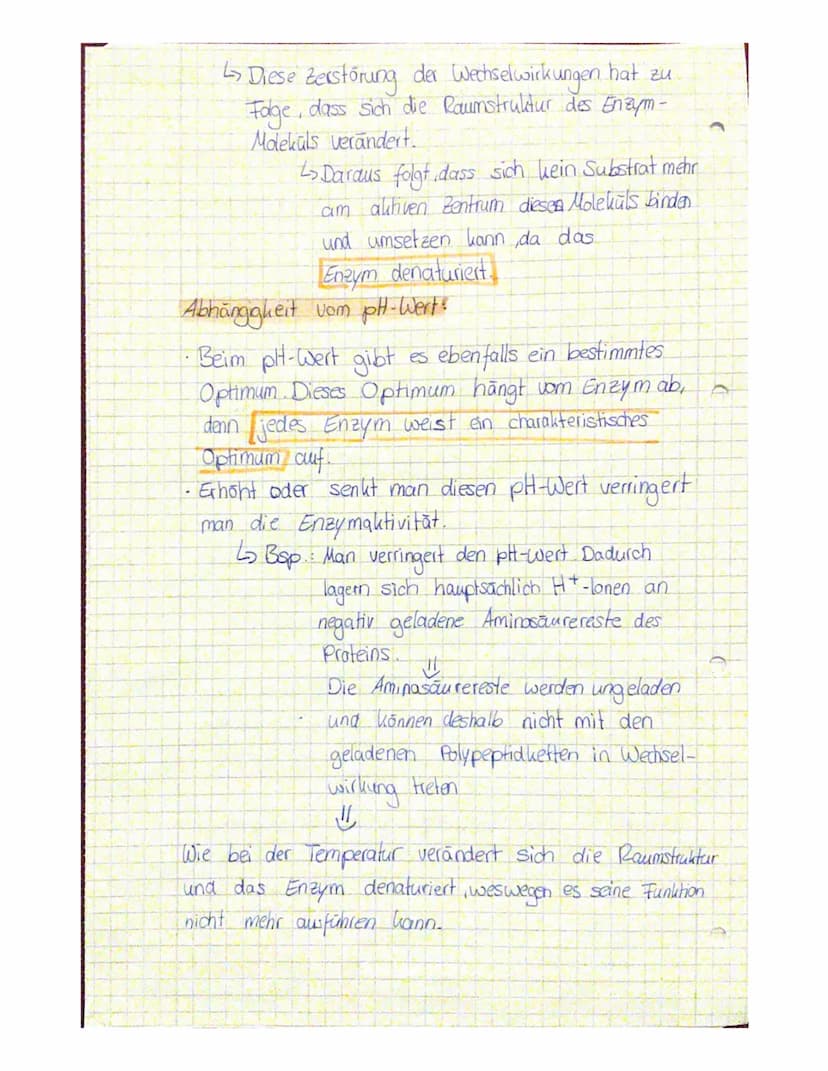 ↳ Diese Zerstörung der Wechselwirkungen hat zu
Folge, dass sich die Raumstruktur des Enzym-
Moleküls verändert.
↳ Daraus folgt, dass sich kein Substrat mehr
am aktiven Zentrum dieses Moleküls binden
und umsetzen kann, da das
Enzym denaturiert.
Abhänggkeit vom pH-Wert:
· Beim pH-Wert gibt es ebenfalls ein bestimmtes
Optimum. Dieses Optimum hängt vom Enzym ab,
denn jedes Enzym weist ein charakteristisches
Optimum auf.
· Erhöht oder senkt man diesen pH-Wert verringert
man die Enzymaktivität.
↳ Bsp.: Man verringert den pH-Wert. Dadurch
lagern sich hauptsächlich H⁺-Ionen an
negativ geladene Aminosäurereste des
Proteins.
⇓
Die Aminosäurereste werden ungeladen
und können deshalb nicht mit den
geladenen Polypeptidketten in Wechsel-
wirkung treten
⇓
Wie bei der Temperatur verändert sich die Raumstruktur
und das Enzym denaturiert, weswegen es seine Funktion
nicht mehr ausführen kann.